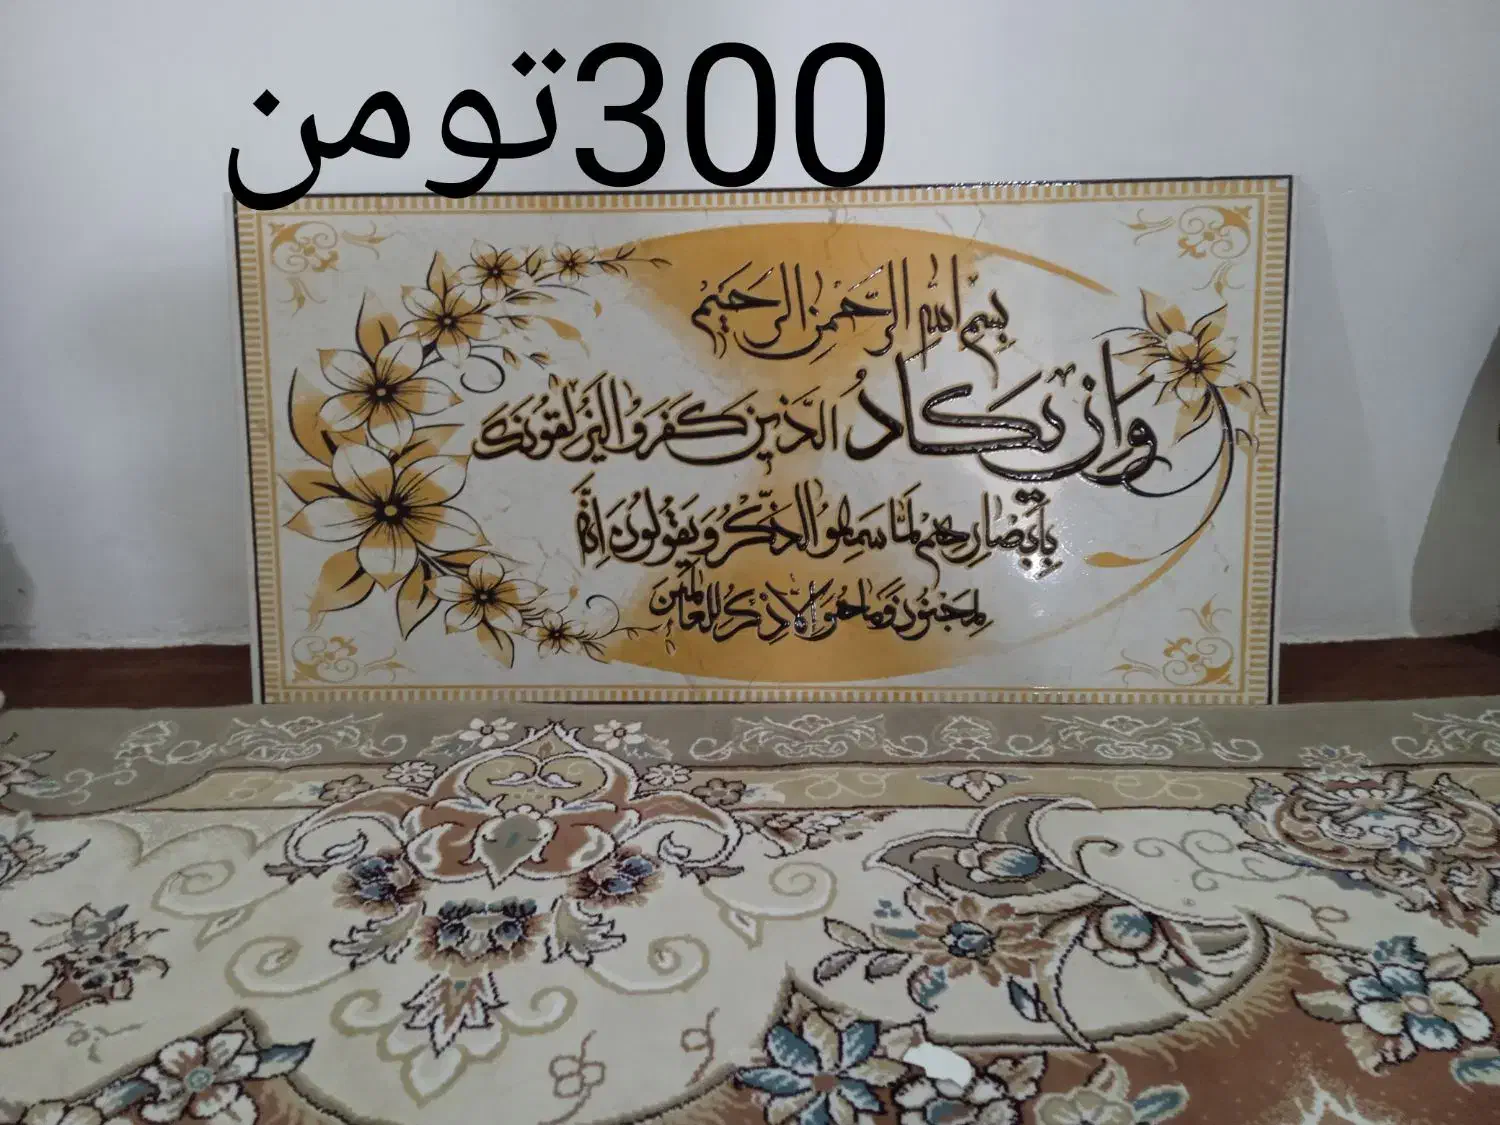 300تومن
بسم الله الرحمن الرحیم
وَاِن یَکادُ الَّذینَ کَفَروُا لَیُزلِقُونَکَ
بِاَبصارِهِم لَمّا سَمِعُوا الذِّکرَ وَیَقُولُونَ اِنَّهُ
لَمَجنُونٌ وَما هُوَ اِلّا ذِکرٌ لِلعالَمین